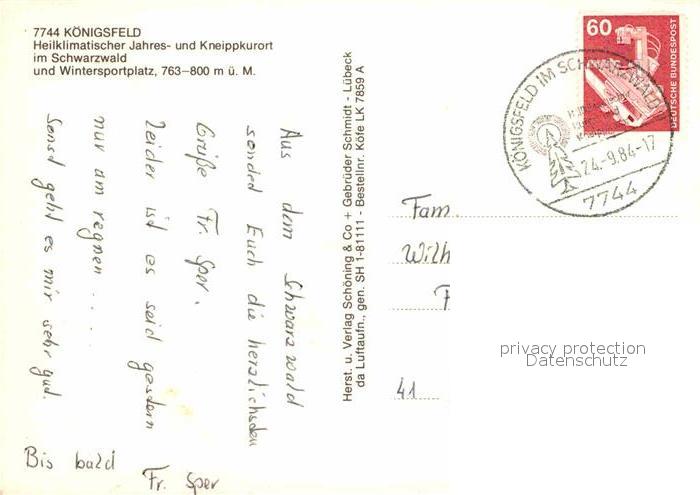 7744 KÖNIGSFELD
Heilklimatischer Jahres- und Kneippkurort
im Schwarzwald
und Wintersportplatz, 763–800 m ü. M.
Aus dem Schwarzwald
sended Euch die herzlichsden
Grüße Fr. Sper.
Leider ist es seid gesdern
nur am regnen . . . .
Sonsd gehd es mir sehr gud.
Bis bald
Fr. Sper
Herst. u. Verlag Schöning & Co + Gebrüder Schmidt - Lübeck
da Luftaufn., gen. SH 1-81111 - Bestellnr. Köfe LK 7859 A
60
DEUTSCHE BUNDESPOST
KÖNIGSFELD IM SCHWARZWALD
24.-9.84-17
7744
Fam.
Wilh
F
41
privacy protection
Datenschutz